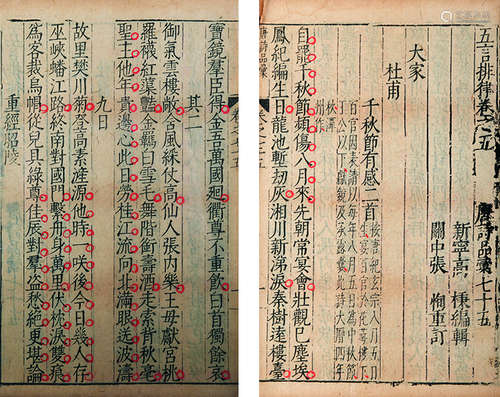 五言排律卷之
唐詩品彙七十五
新寧高 棅編輯
關中張 恂重訂
大家
杜甫
千秋節有感二首
按唐紀玄宗八月五日
生宴百官於花萼樓下
百官因奏請以每年八月五日為千秋節
王公以下獻鏡及承露囊此詩大曆四年
秋潭
州作
自罷千秋節頻傷八月來先朝常宴會壯觀已塵埃
鳳紀編生日龍池塹劫灰湘川新涕淚秦樹遠樓臺
寶鏡羣臣得金吾萬國迴衢尊不重飲白首獨餘哀
其二
御氣雲樓敞含風綵仗高仙人張內樂王母獻宮桃
羅襪紅蕖豔金羈白雪毛舞階銜壽酒走索背秋毫
聖主他年貴邊心此日勞桂江流向北滿眼送波濤
九日
故里樊川菊登高素滻源他時一咲後今日幾人存
巫峽蟠江路終南對國門繫舟身萬里伏枕淚雙痕
為客裁烏帽從兒具綠尊佳辰對羣盜愁絕更堪論
重經昭陵